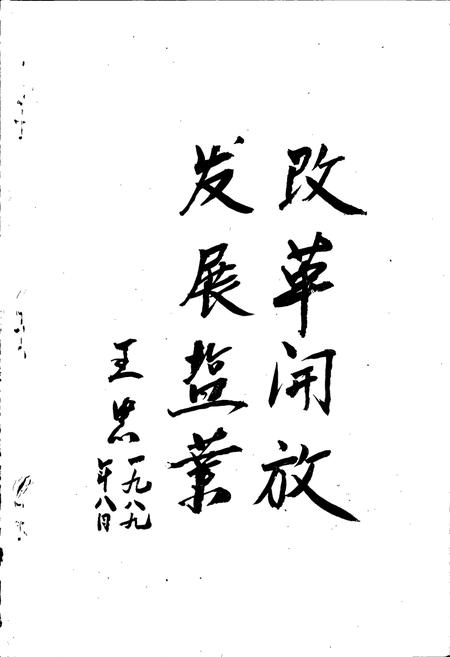 改革開放
发展盐業
王忠
一九八九
年八月